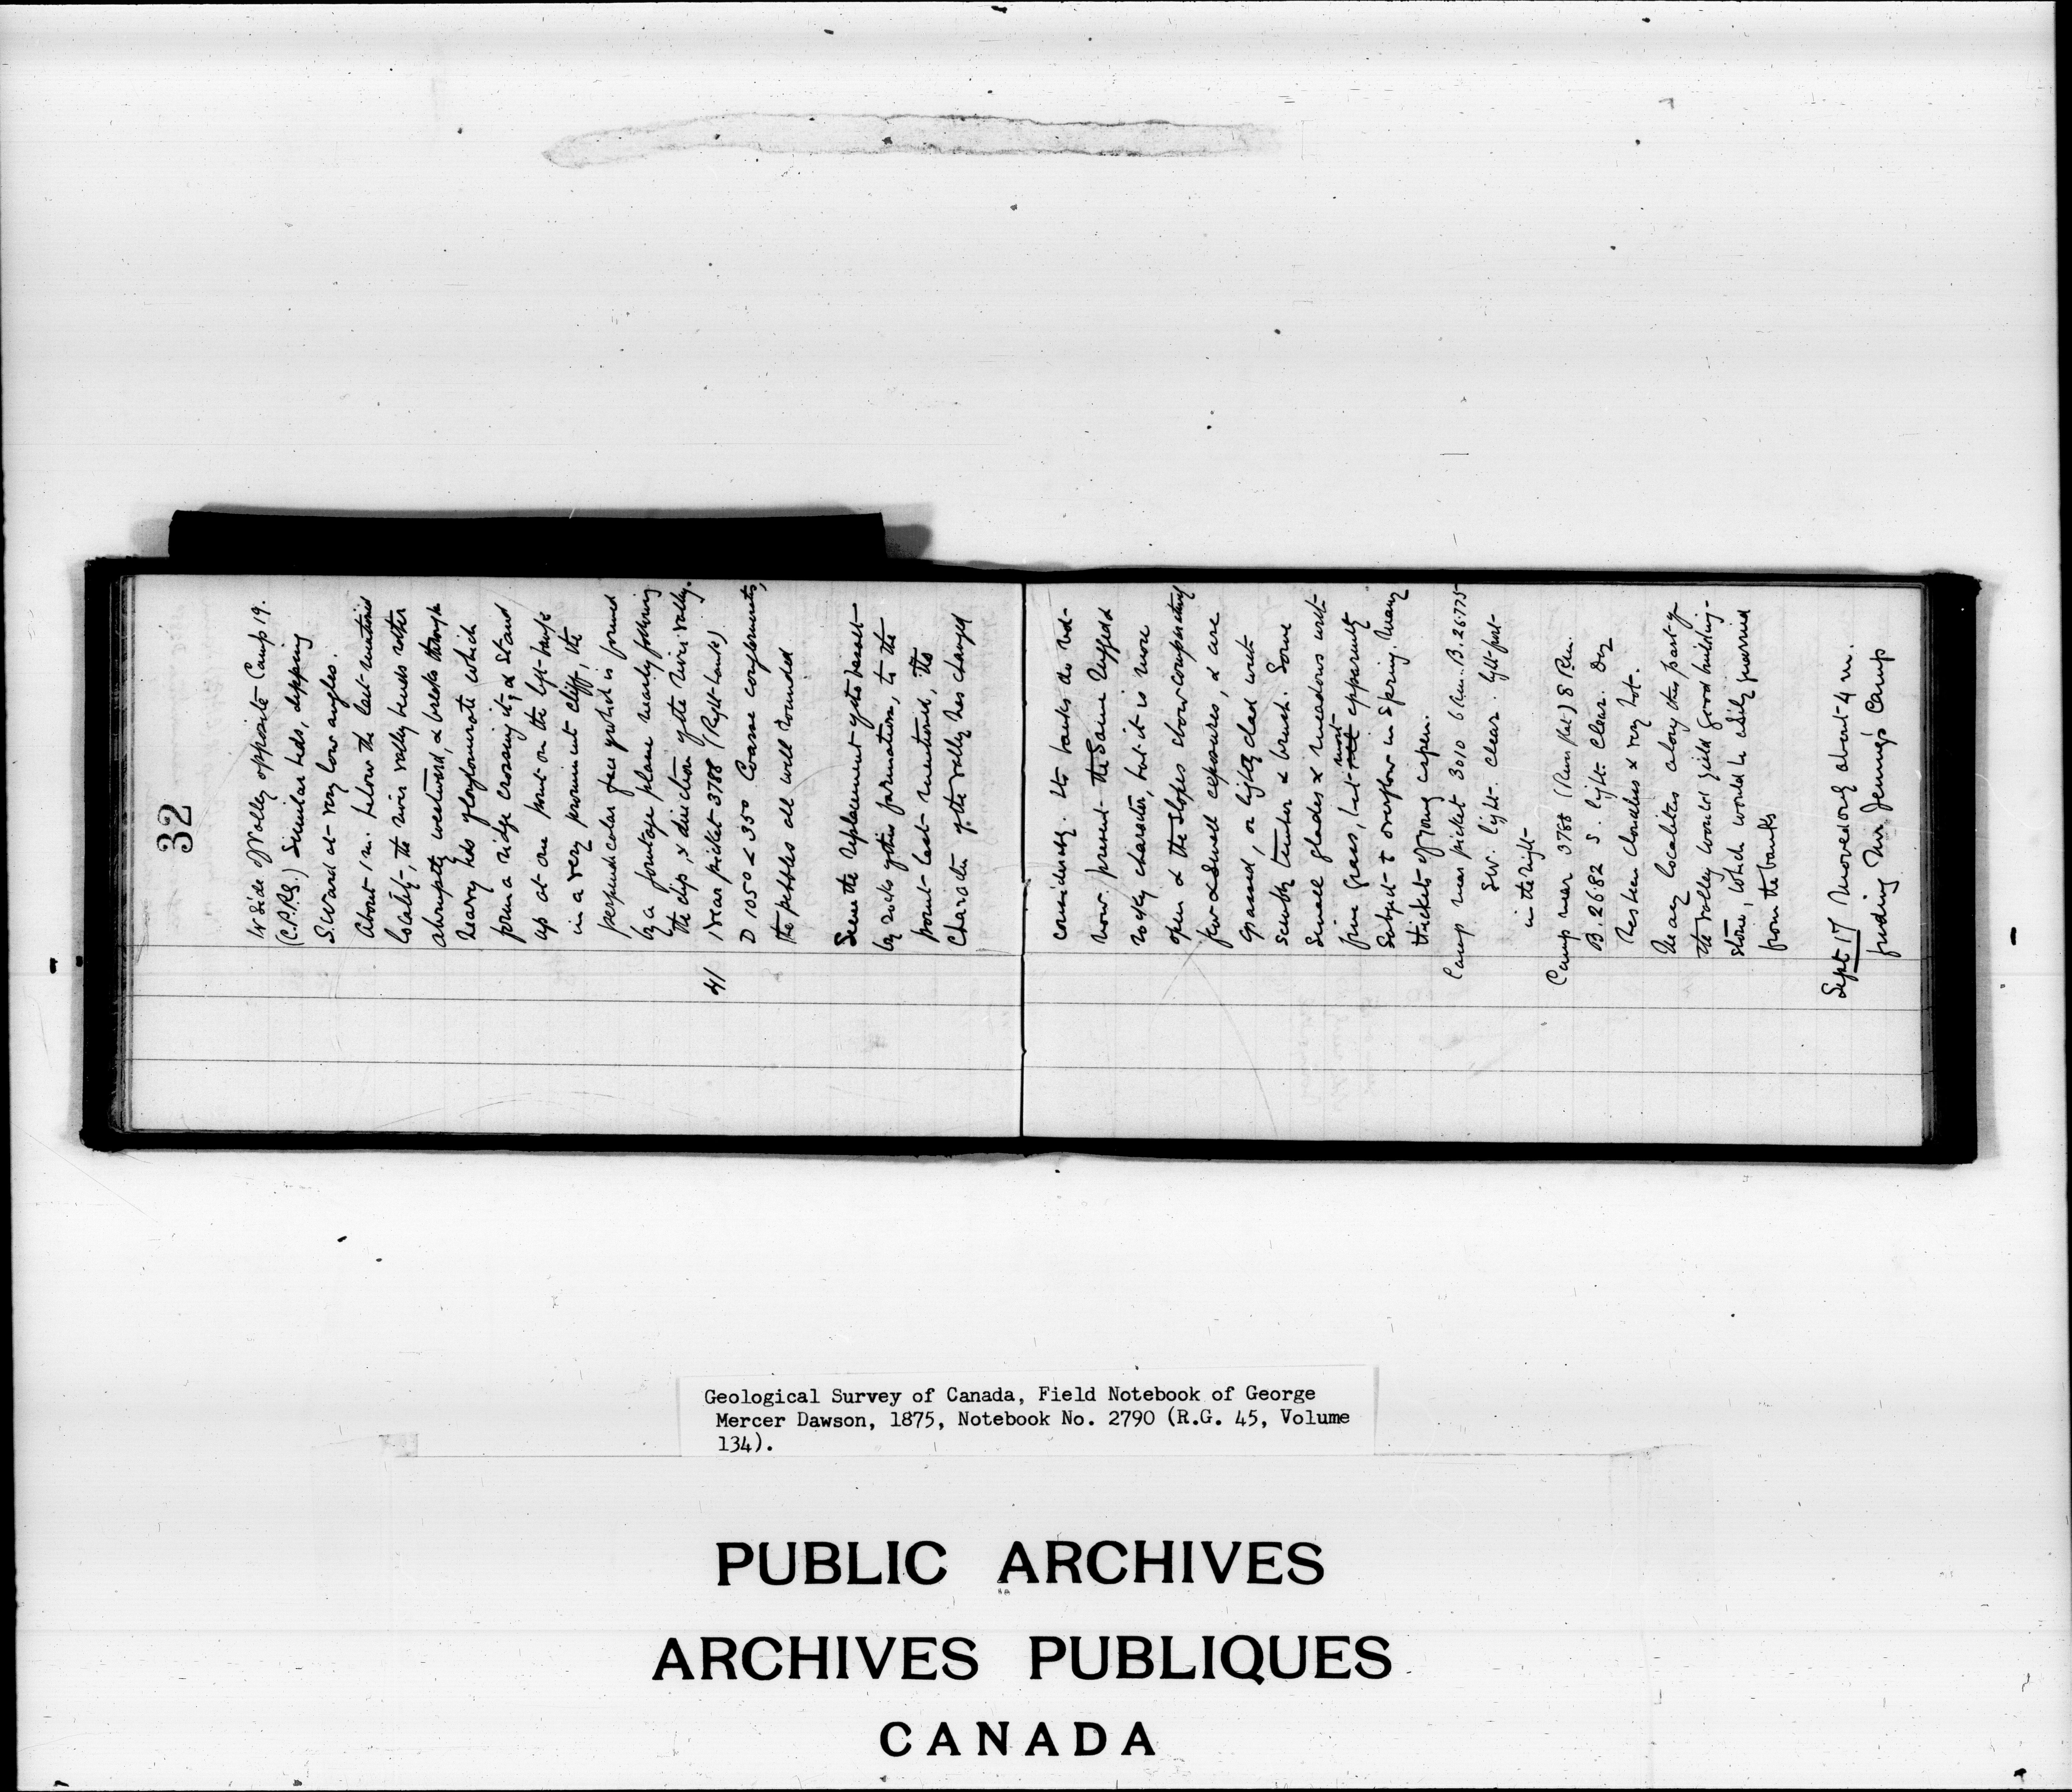 32
W Side of Valley opposite Camp 19.
(C.P.R.S.) Similar beds, dipping
S.ward at very low angles.
About 1 m. below the last mentioned
locality, the river valley bends rather
abruptly westward, & breaks through
heavy beds of conglomerate which
form a ridge crossing it, & stand
up at one point on the left bank
in a very prominent cliff, the
perpendicular face of which is formed
by a jointage plane nearly following
the dip, & direction of the river valley.
41 Near picket 3788 (Right bank)
D 1050 < 350 Coarse conglomerates,
the pebbles all well rounded
Since the replacement of the basalt
by rocks of this formation, to the
point last mentioned, the
character of the valley has changed
considerably. Its banks do not
now present the same rugged &
rocky character, but it is more
open & the slopes show comparatively
few & small exposures, & are
grassed, or lightly clad with
scrubby timber & brush. Some
small glades & meadows with
fine grass, but most apparently
subject to overflow in Spring. Many
thickets of young aspen.
Camp near picket 3010 6 A.m. B. 26.775
SW. light. Clear. light frost
in the night
Camp near 3788 ( ) 8 P.m.
B. 26.82 S. light. Clear. Day
has been cloudless & very hot.
Many localities along this part of
the valley would yield good building-
stone, which would be easily quarried
from the banks
Sept 17 Moved only about 4 m.
finding Mr Jennings Camp
Geological Survey of Canada, Field Notebook of George
Mercer Dawson, 1875, Notebook No. 2790 (R.G. 45, Volume
134).
PUBLIC ARCHIVES
ARCHIVES PUBLIQUES
CANADA